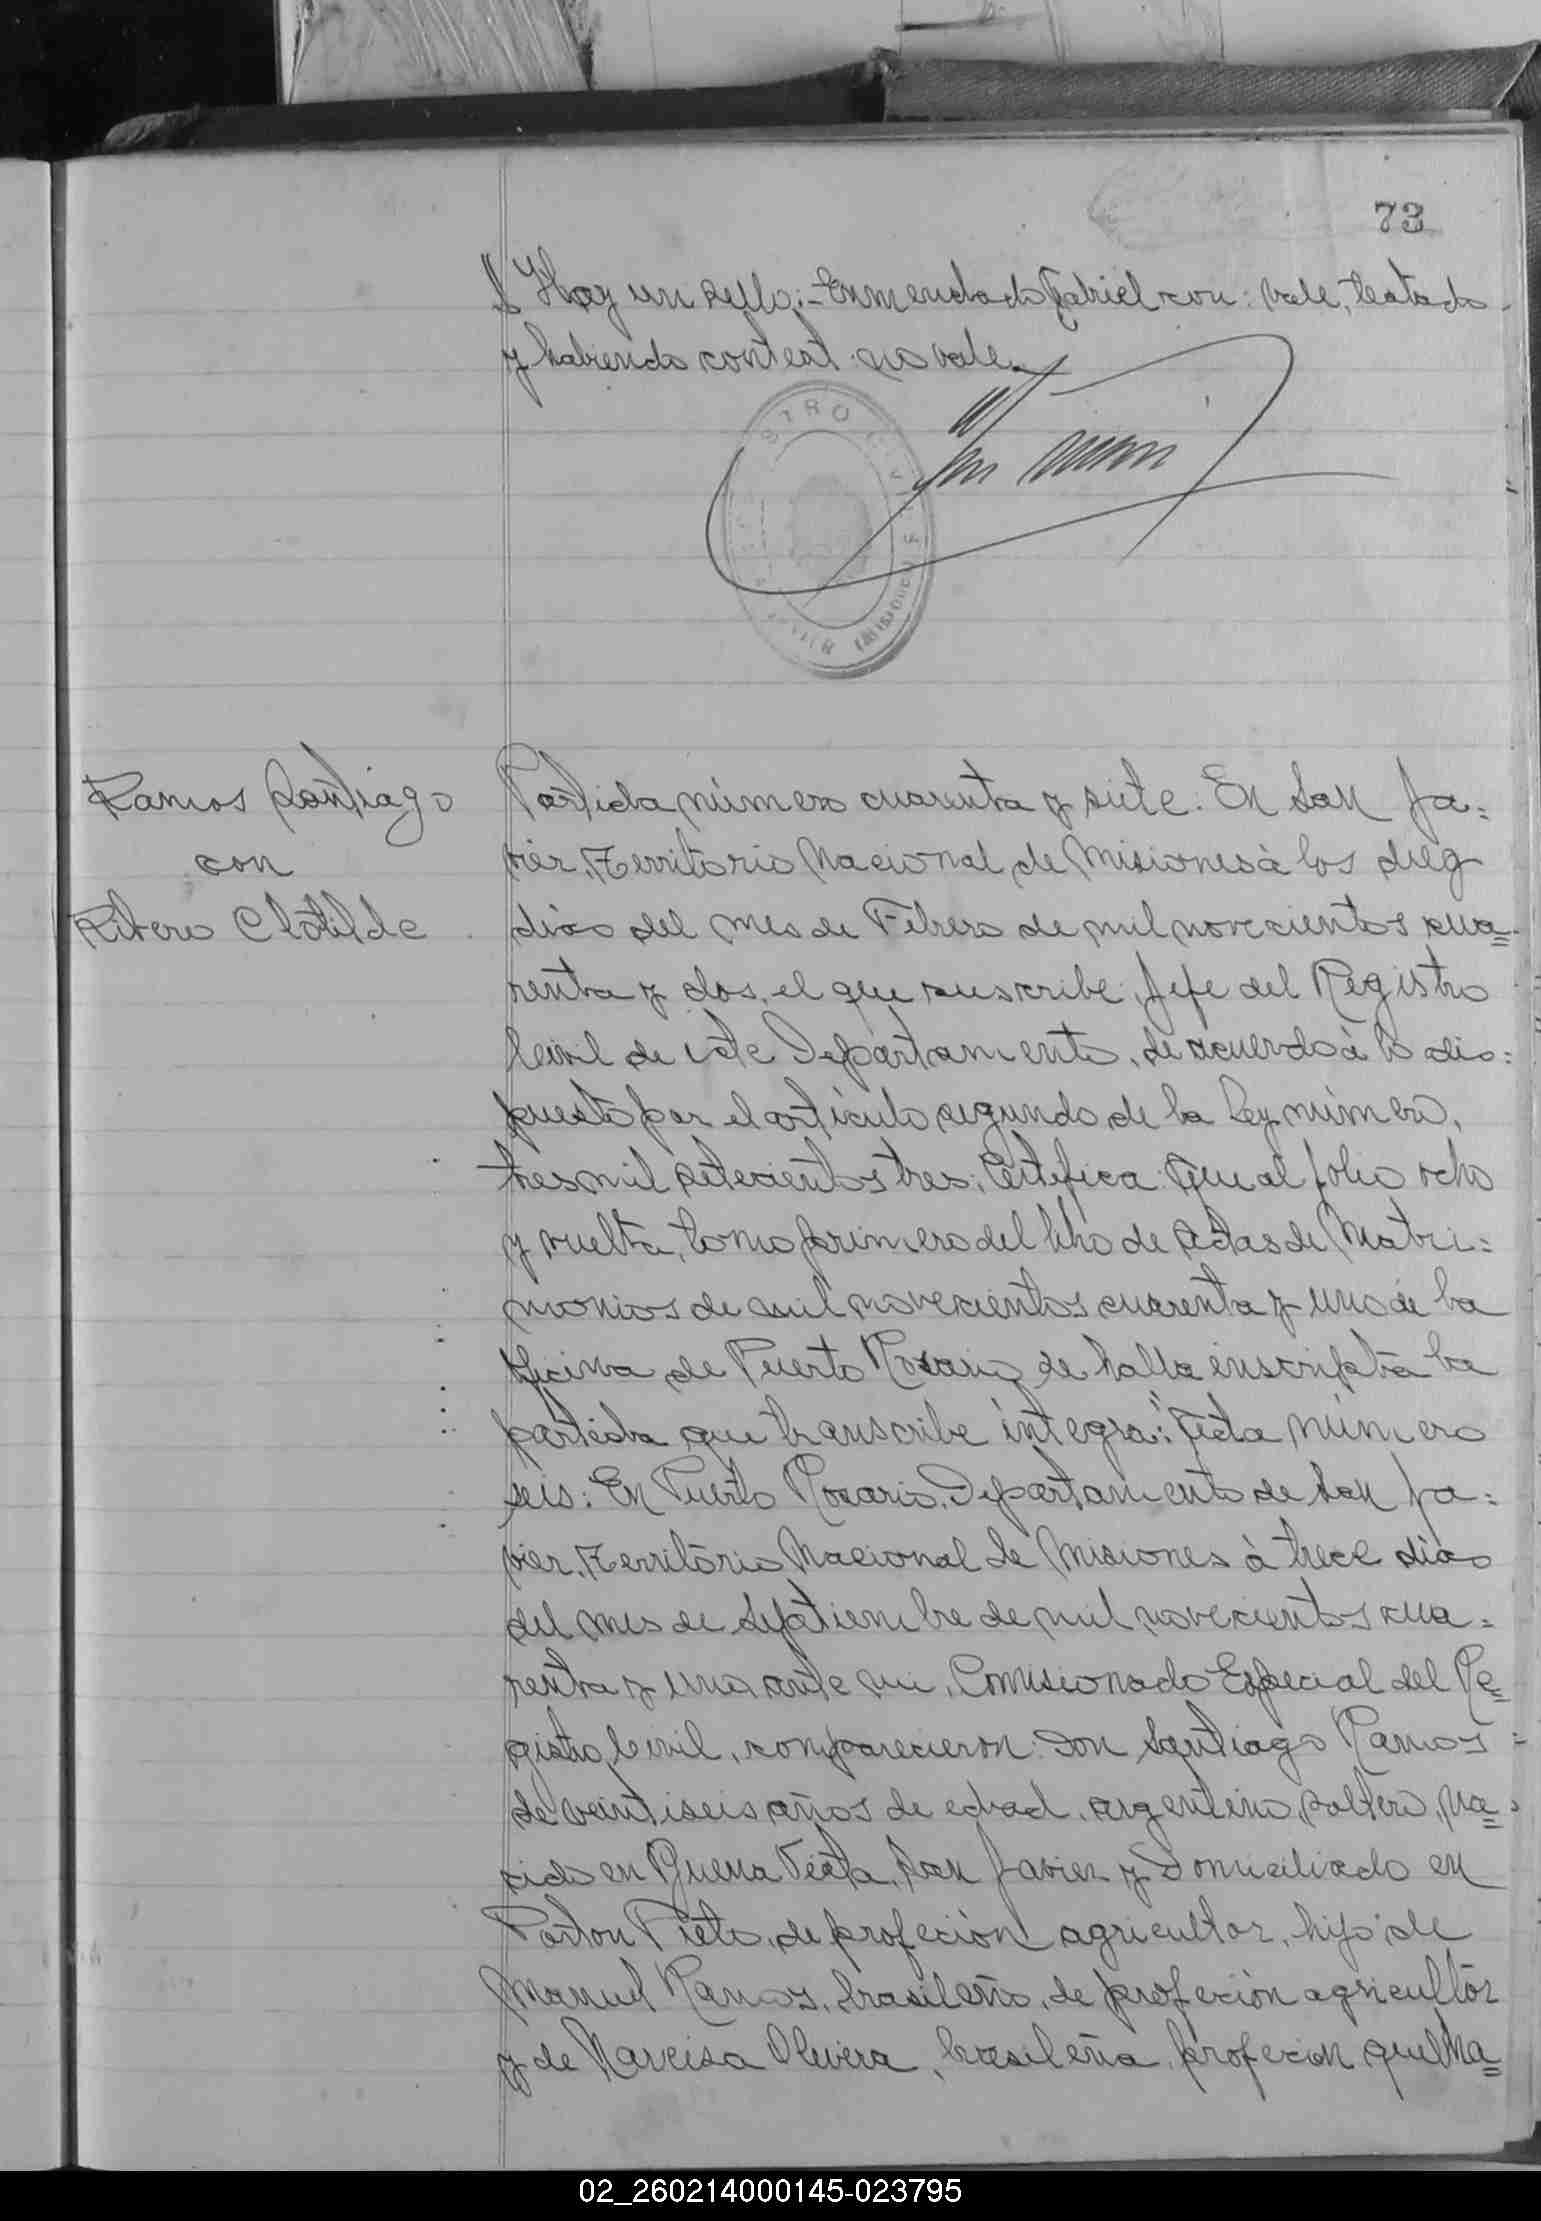 73
Hay un sello:- Enmendado Gabriel con: vale, testado
y habiendo contest no vale.
Ramos Santiago
con
Ribero Clotilde
Partida número cuarenta y siete: En San Ja=
vier, Territorio Nacional de Misiones à los diez
dias del mes de Febrero de mil novecientos cua=
renta y dos, el que suscribe, Jefe del Registro
Civil de este Departamento, de acuerdo à lo dis=
puesto por el artículo segundo de la Ley número,
tres mil setecientos tres; Certifica: Que al folio ocho
y vuelta, tomo primero del libro de Actas de Matri=
monios de mil novecientos cuarenta y uno de la
Oficina de Puerto Rosario se halla inscripta la
partida que transcribe integra: "Acta número
seis: En Puerto Rosario, Departamento de San Ja=
vier, Territorio Nacional de Misiones à trece dias
del mes de Septiembre de mil novecientos cua=
renta y uno, ante mi, Comisionado Especial del Re=
gistro Civil, comparecieron: Don Santiago Ramos
de veintiseis años de edad, argentino, soltero, na=
cido en Buena Vista, San Javier y Domiciliado en
Porton Vieto, de profeción agricultor, hijo de
Manuel Ramos, brasileño, de profeción agricultor
y de Narcisa Olivera, brasileña, profecion quelha=
02_260214000145-023795